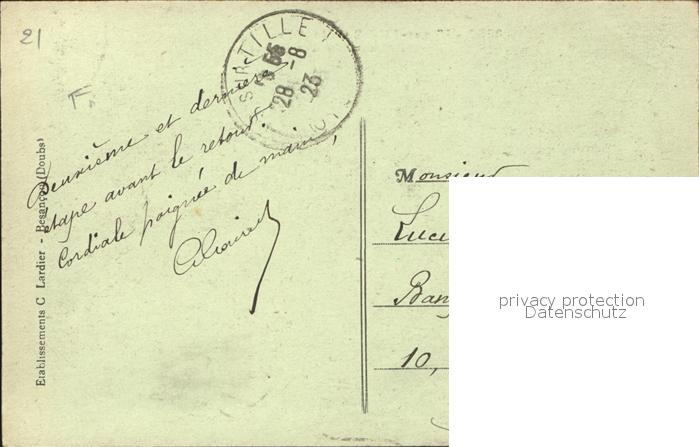 21
F.
IS-SUR-TILLE
28 -8 23
Deuxième et dernière
étape avant le retour.
Cordiale poignée de main,
Monsieur
Luci
Ban
10,
Etablissements C Lardier - Besançon (Doubs)
privacy protection
Datenschutz